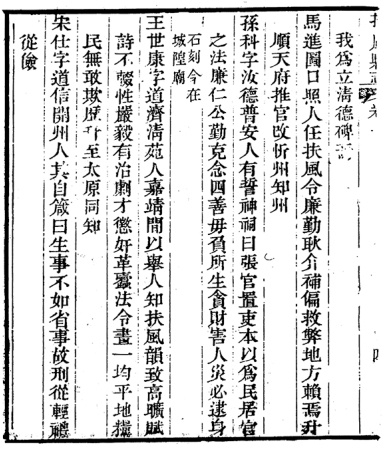 我爲立淸德碑
馬進圖口照人任扶風令廉勤耿介補偏救弊地方賴焉升
順天府推官改忻州知州
孫科字汝德普安人有誓神祠曰張官置吏本以爲民居官
之法廉仁公勤克念四善毋負所生貪財害人災必逮身
石刻今在
城隍廟
王世康字道濟淸苑人嘉靖間以舉人知扶風韻致高曠賦
詩不輟性嚴毅有治劇才懲奸革蠹法令畫一均平地糧
民無敢欺至太原同知
宋仕字道信開州人其自箴曰生事不如省事故刑從輕禮
從儉